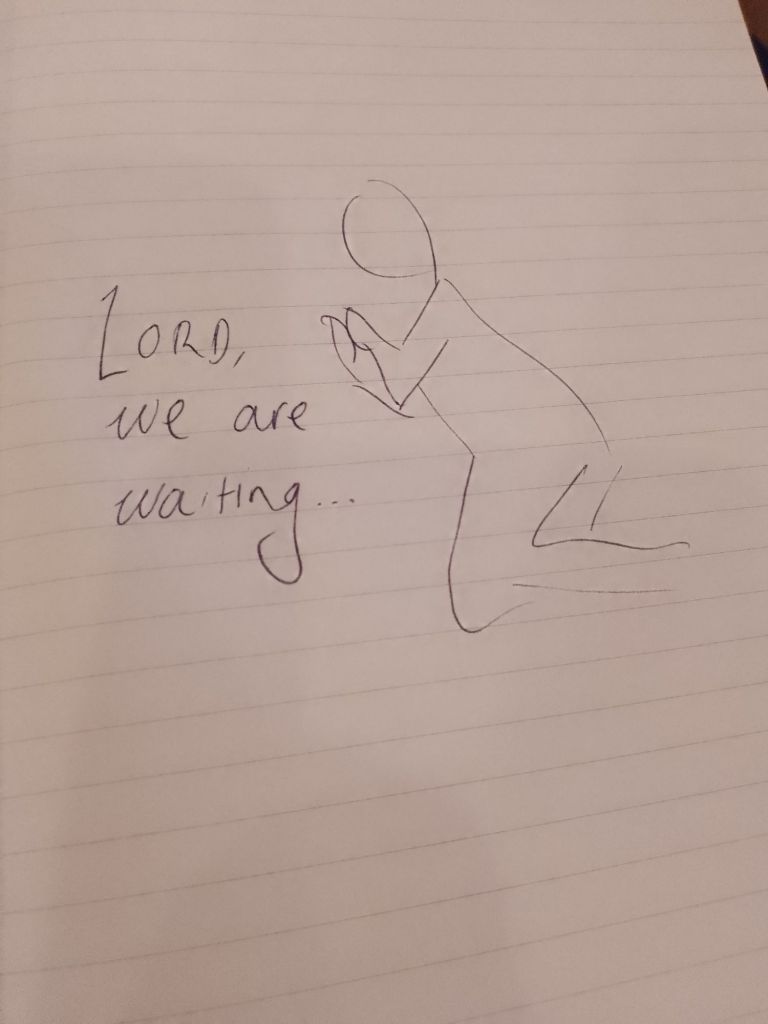 LORD,
we are
waiting...